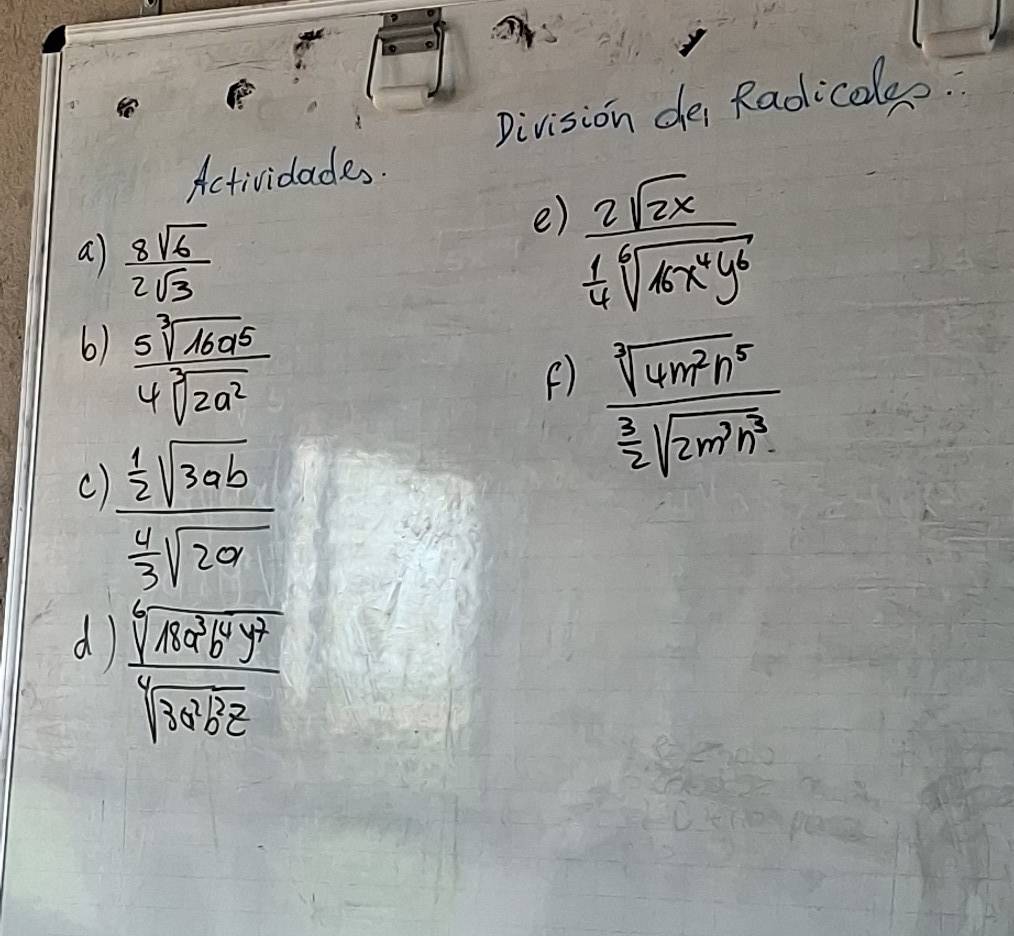 División de Radicales:
Actividades.
a) 8√6 / 2√3
b) 5∛16a⁵ / 4∛2a²
c) ½√3ab / ⁴⁄₃√2a
d) ⁶√18a³b⁴y⁷ / ⁴√3a²b²z
e) 2√2x / ¼ ⁶√16x⁴y⁶
f) ∛4m²n⁵ / ³⁄₂√2m³n³